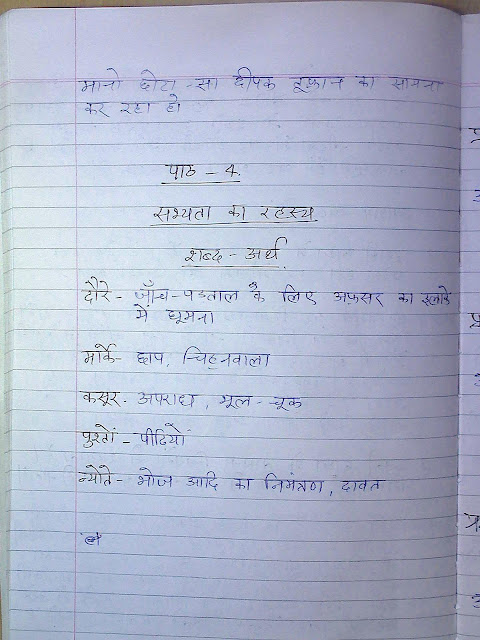 मानो छोटा-सा दीपक तूफ़ान का सामना
कर रहा हो।
पाठ - 4.
सभ्यता का रहस्य
शब्द - अर्थ
दौरे - जाँच-पड़ताल के लिए अफ़सर का इलाके
में घूमना
मार्के - छाप, चिह्नवाला
कसूर - अपराध, भूल-चूक
पुश्तों - पीढ़ियों
न्योते - भोज आदि का निमंत्रण, दावत